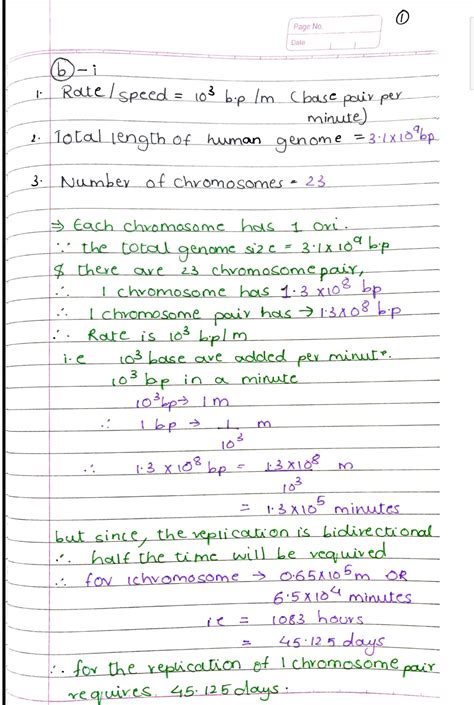 Page No.
Date
①
ⓑ-i
1. Rate/speed = 10³ b.p/m (base pair per
minute)
2. Total length of human genome = 3.1x10⁹bp
3. Number of chromosomes = 23
⇒ Each chromosome has 1 ori.
∵ the total genome size = 3.1x10⁹ b.p
& there are 23 chromosome pair,
∴ 1 chromosome has 1.3x10⁸ bp
∴ 1 chromosome pair has → 1.3x10⁸ b.p
∴ Rate is 10³ b.p/m
i.e 10³ base are added per minute.
10³ bp in a minute
10³bp→ 1m
∴ 1 bp → 1/10³ m
∴ 1.3 x 10⁸ bp = 1.3x10⁸/10³ m
= 1.3x10⁵ minutes
but since, the replication is bidirectional
∴ half the time will be required
∴ for 1chromosome → 0.65x10⁵m OR
6.5x10⁴ minutes
ie = 1083 hours
= 45.125 days
∴ for the replication of 1 chromosome pair
requires 45.125 days.